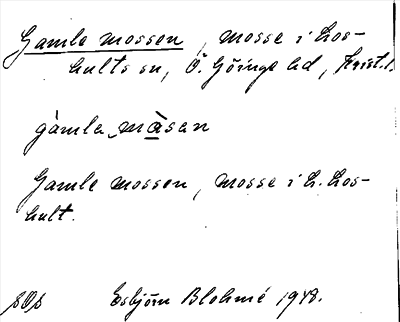 Gamle mossen, mosse i Los-
hults sn, Ö. Göinge hd, Krist. l.
gàmla mòsan
Gamle mossen, mosse i L. Los-
hult.
Esbjörn Blohmé 1948.